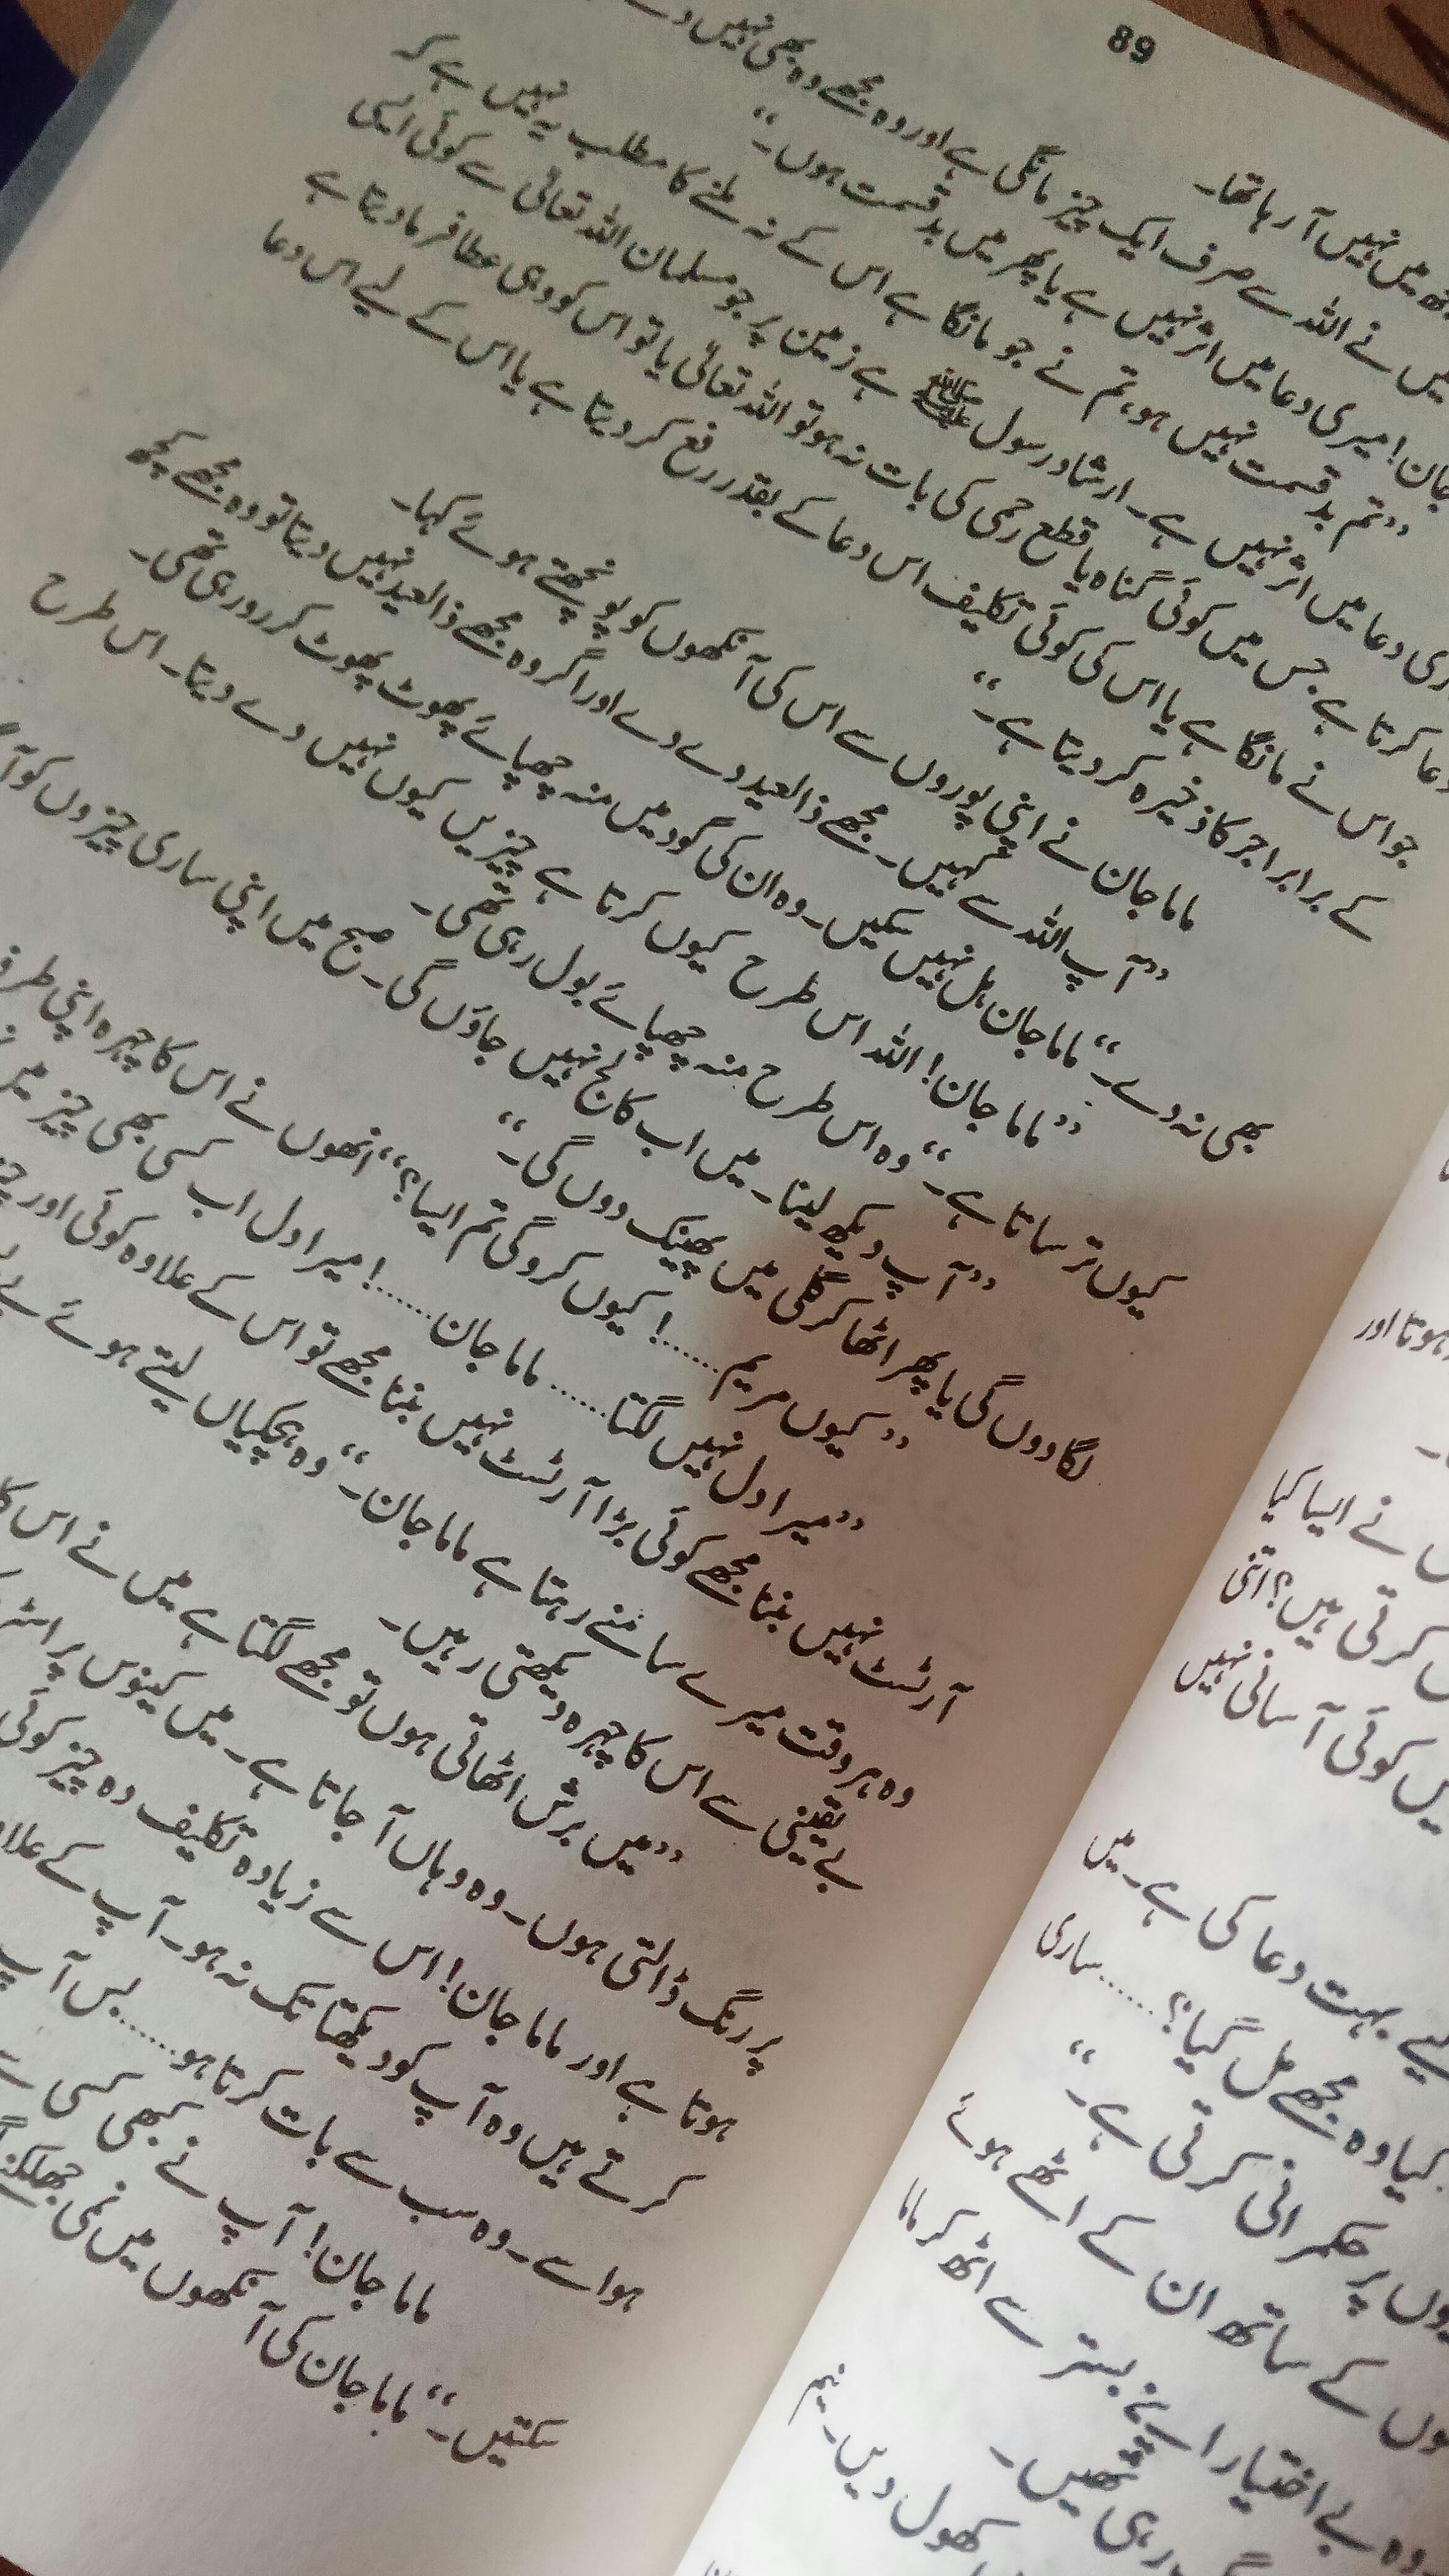 89
میں نہیں آ رہا تھا۔
میں نے اللہ سے صرف ایک چیز مانگی ہے اور وہ مجھے وہ بھی نہیں
جان! میری دعا میں اثر نہیں ہے یا پھر میں بدقسمت ہوں۔“
”تم بدقسمت نہیں ہو، تم نے جو مانگا ہے اس کے نہ ملنے کا مطلب یہ نہیں ہے کہ
دعا میں اثر نہیں ہے۔ ارشاد رسول ﷺ ہے زمین پر جو مسلمان اللہ تعالیٰ سے کوئی ایسی
دعا کرتا ہے جس میں کوئی گناہ یا قطع رحمی کی بات نہ ہو تو اللہ تعالیٰ یا تو اس کو وہی عطا فرما دیتا ہے
جو اس نے مانگا ہے یا اس کی کوئی تکلیف اس دعا کے بقدر رفع کر دیتا ہے یا اس کے لیے اس دعا
کے برابر اجر کا ذخیرہ کر دیتا ہے۔“
ماما جان نے اپنی پوروں سے اس کی آنکھوں کو پونچھتے ہوئے کہا۔
”آپ اللہ سے کہیں۔ مجھے ذالعید دے دے اور اگر وہ مجھے ذالعید نہیں دیتا تو وہ مجھے کچھ
بھی نہ دے۔“ ماما جان ہل نہیں سکیں۔ وہ ان کی گود میں منہ چھپائے پھوٹ پھوٹ کر رو رہی تھی۔
”ماما جان! اللہ اس طرح کیوں کرتا ہے چیزیں کیوں نہیں دے دیتا۔ اس طرح
کیوں ترساتا ہے۔“ وہ اس طرح منہ چھپائے بول رہی تھی۔
”آپ دیکھ لینا۔ میں اب کالج نہیں جاؤں گی۔ صبح میں اپنی ساری چیزوں کو
لگا دوں گی یا پھر اٹھا کر گلی میں پھینک دوں گی۔“
”کیوں مریم......! کیوں کرو گی تم ایسا؟“ انھوں نے اس کا چہرہ اپنی
”میرا دل نہیں لگتا..... ماما جان.....! میرا دل اب کسی بھی چیز میں
آرٹسٹ نہیں بننا مجھے کوئی بڑا آرٹسٹ نہیں بننا مجھے تو اس کے علاوہ کوئی اور
وہ ہر وقت میرے سامنے رہتا ہے ماما جان۔“ وہ ہچکیاں لیتے ہوئے
بے یقینی سے اس کا چہرہ دیکھتی رہیں۔
”میں برش اٹھاتی ہوں تو مجھے لگتا ہے میں نے اس
پر رنگ ڈالتی ہوں۔ وہ وہاں آ جاتا ہے۔ میں کینوس پر
ہوتا ہے اور ماما جان! اس سے زیادہ تکلیف دہ چیز کوئی
کرتے ہیں وہ آپ کو دیکھتا تک نہ ہو۔ آپ کے
ہوا سے۔ وہ سب سے بات کرتا ہو...... بس آپ
ماما جان! آپ نے کبھی کسی
سکتیں۔“ ماما جان کی آنکھوں میں نمی
ہوتا اور
نے ایسا کیا
کرتی ہیں؟ اتنی
کوئی آسانی نہیں
بہت دعا کی ہے۔ میں
کیا وہ مجھے مل گیا؟...... ساری
پر حکمرانی کرتی ہے۔“
کے ساتھ ان کے اٹھے ہوئے
وہ بے اختیار اپنے بستر سے اٹھ کر ماما
رہی تھیں۔
کھول دیں۔